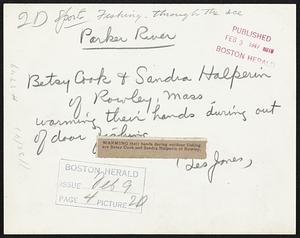 2D Sport Fishing - through the ice
Parker River
PUBLISHED
FEB 9 1947
BOSTON HERALD
Betsy Cook & Sandra Halperin
of Rowley, Mass
warming their hands during out
of door fishing
WARMING their hands during outdoor fishing
are Betsy Cook and Sandra Halperin of Rowley.
(Les Jones)
BOSTON HERALD
ISSUE Feb 9
PAGE 4 PICTURE 2D